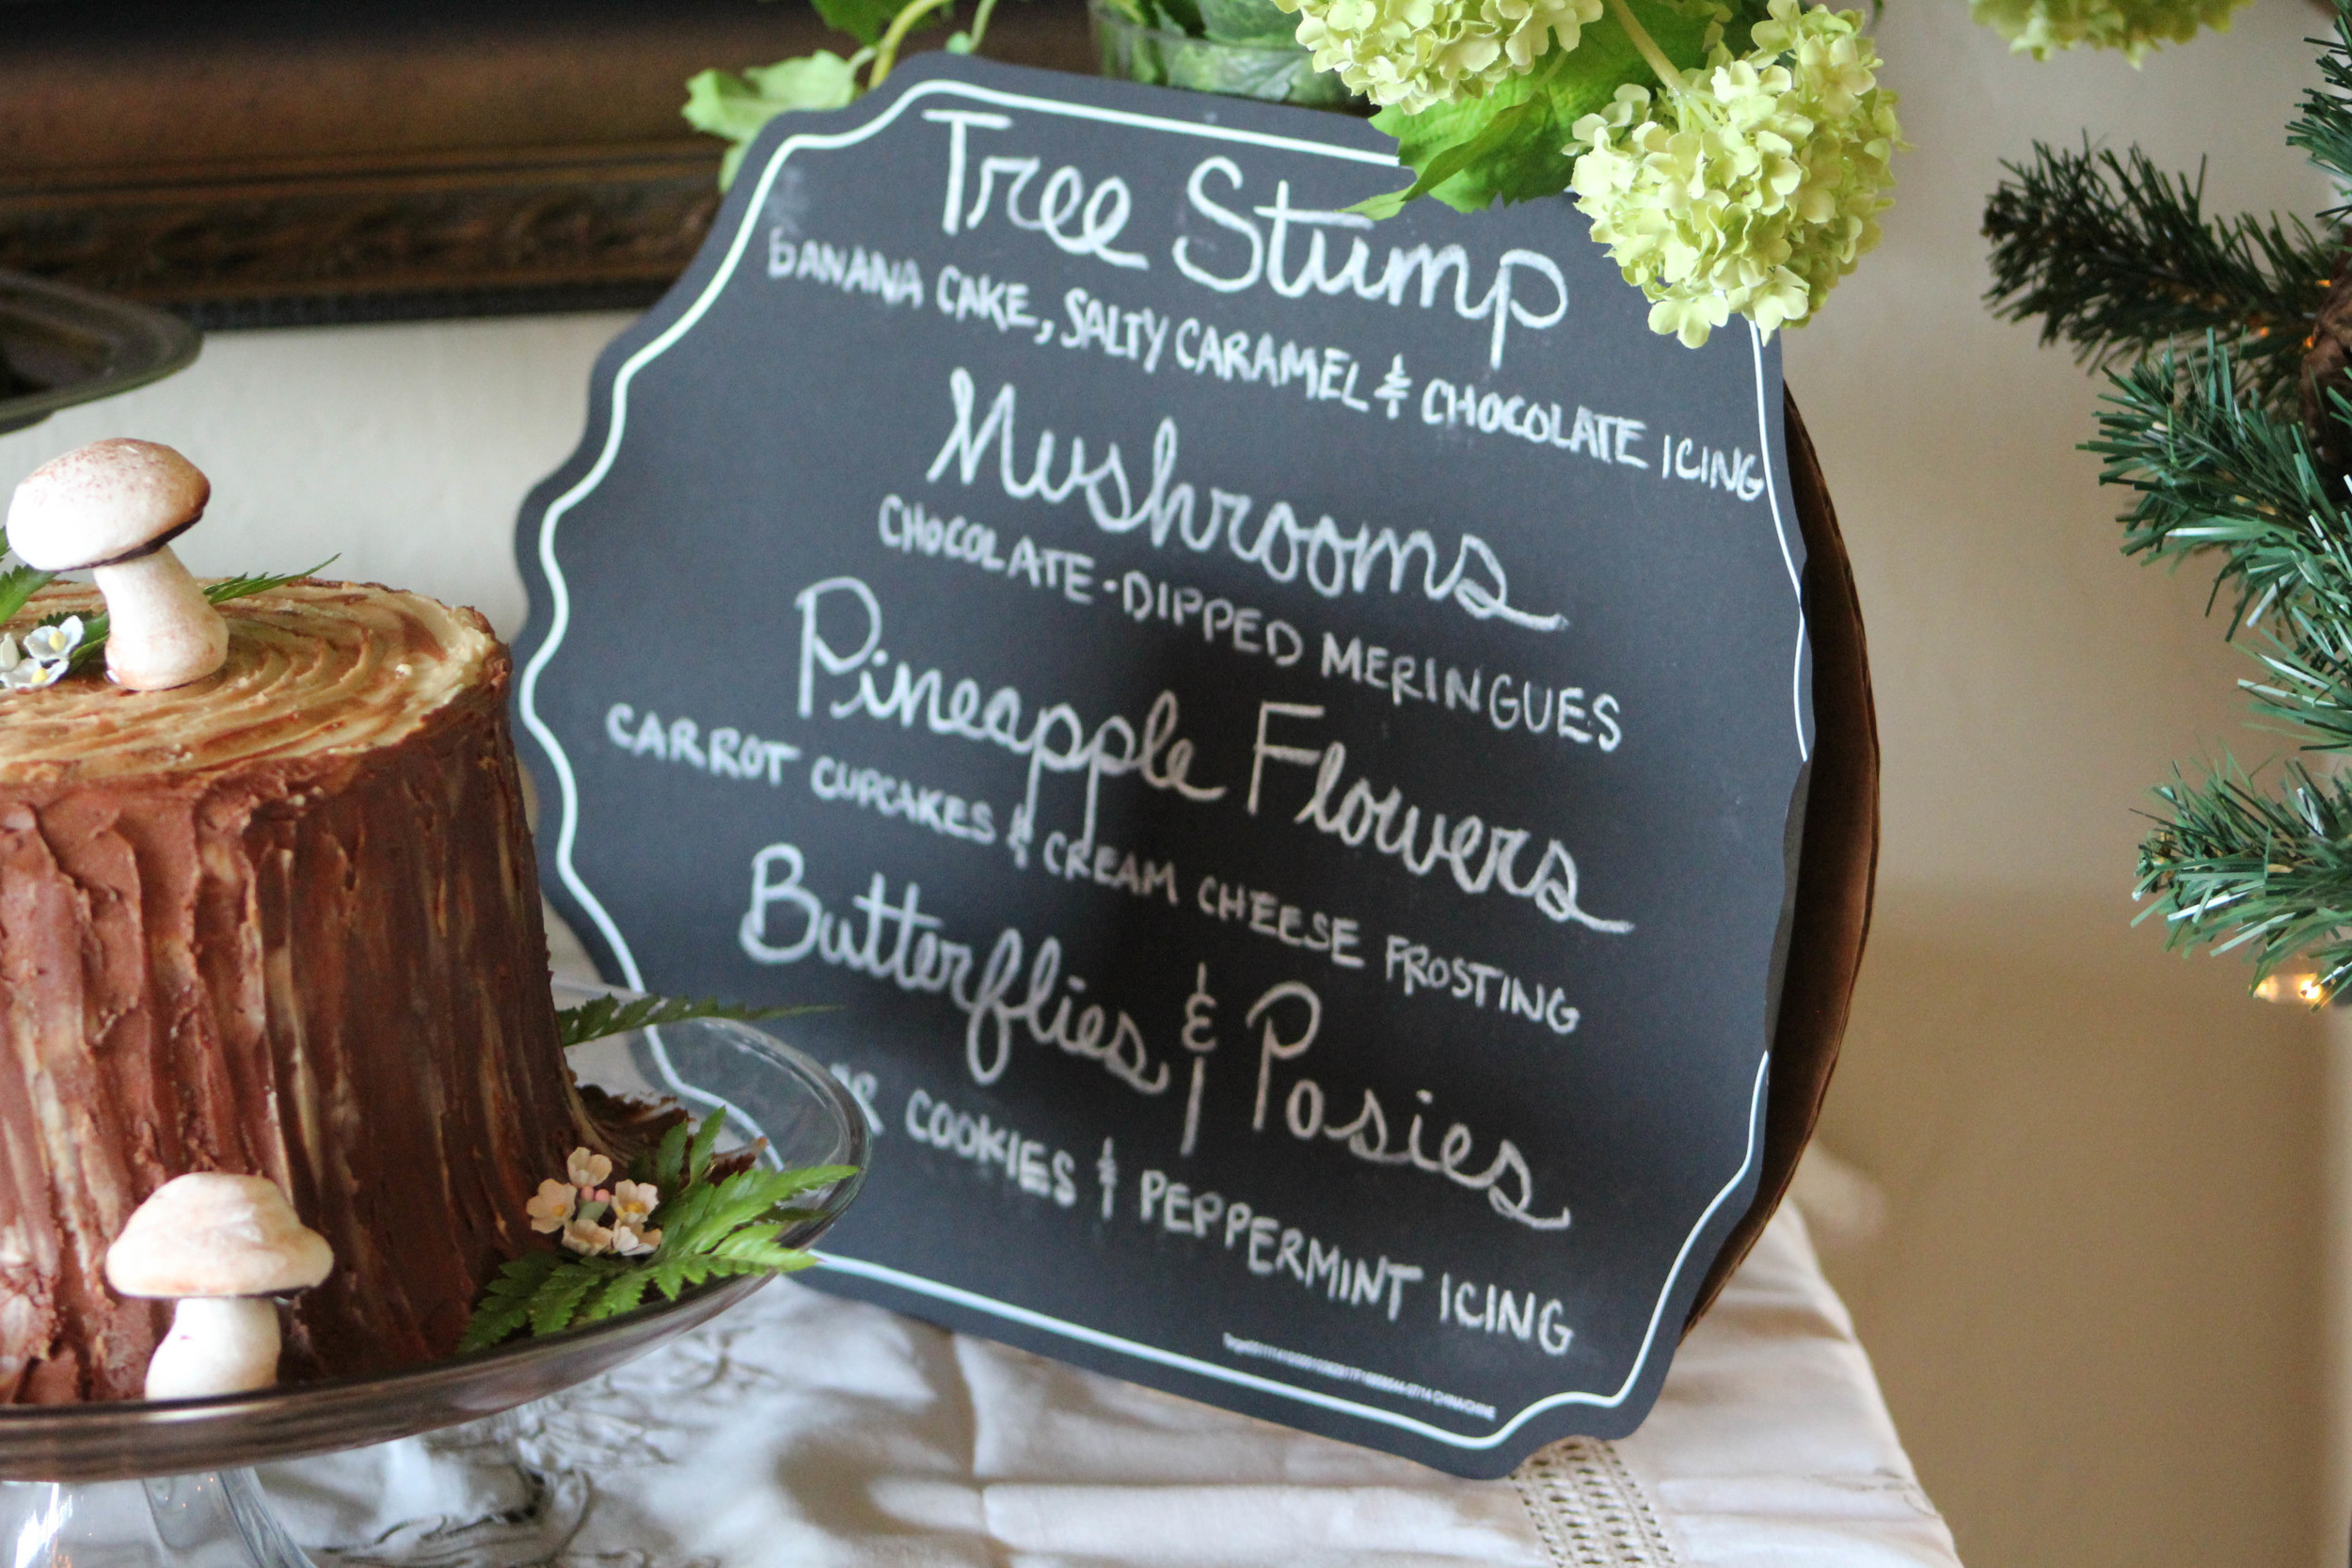 Tree Stump
BANANA CAKE, SALTY CARAMEL & CHOCOLATE ICING
Mushrooms
CHOCOLATE-DIPPED MERINGUES
Pineapple Flowers
CARROT CUPCAKES & CREAM CHEESE FROSTING
Butterflies & Posies
COOKIES & PEPPERMINT ICING